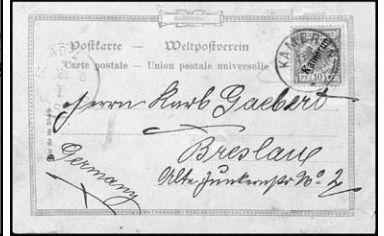 Postkarte — Weltpostverein
Carte postale — Union postale universelle
KAMERUN
Kamerun
10
Herrn Karb Gaebert
Breslau
Alte Junkernstr No. 2
Germany